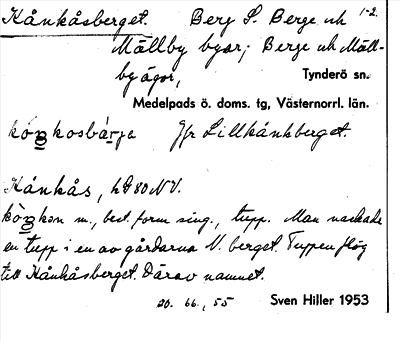 Kånkåsberget. Berg S. Berge uh 1-2.
Mällby byar; Berge uh Mäll-
by ägor,
Tynderö sn.
Medelpads ö. doms. tg, Västernorrl. län.
kóŋkosbàrja Jfr Lillkånkberget.
Kånkås, h G 80 NV.
kòŋkən m., best. form sing., tupp. Man nackade
en tupp i en av gårdarna N. berget. Tuppen flög
till Kånkåsberget. Därav namnet.
20. 66., 55 Sven Hiller 1953